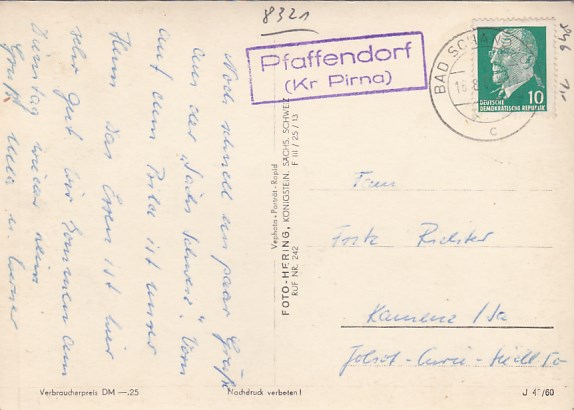 8321
Pfaffendorf
(Kr Pirna)
BAD SCHA
DEUTSCHE
DEMOKRATISCHE REPUBLIK
10
c
Noch schnell ein paar Grüße
aus der "Sächs Schweiz". Vorn
auf dem Bilde ist unser
Heim das Essen ist hier
sehr gut wir kommen am
Dienstag wieder heim
Gruß
Vephota • Porträt • Rapid
FOTO-HERING, KÖNIGSTEIN, SÄCHS. SCHWEIZ
RUF NR. 242
F III / 25 / 13
Fritz Richter
Kamenz /Sa
Joliot-Curie-Siedl
Verbraucherpreis DM —.25
Nachdruck verboten!
J 4 /60